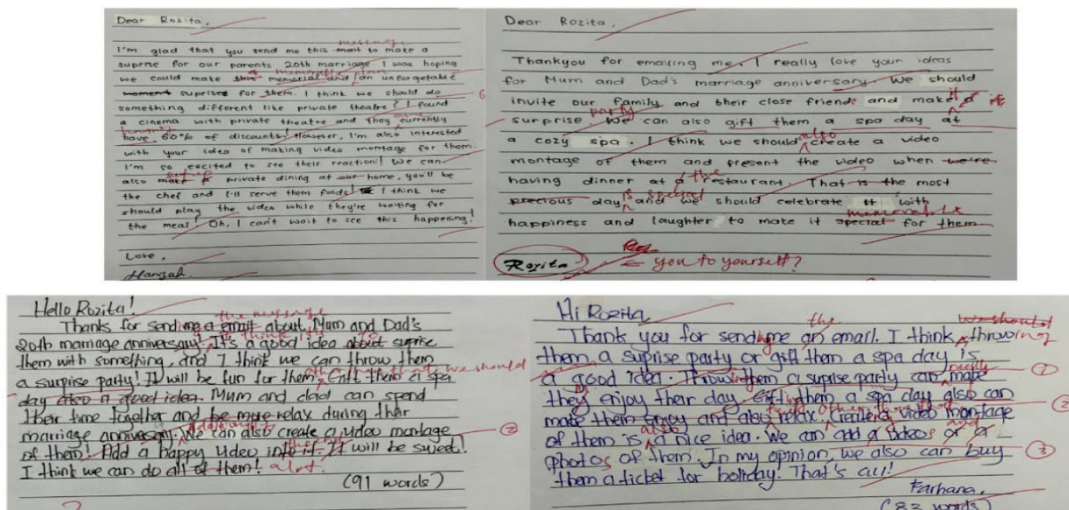 Dear Rozita,
I'm glad that you send me this mail to make a
message
suprise for our parents 20th marriage. I was hoping
we could make this memorial and an unforgetable
a memorable plan
moment suprise for them. I think we should do
something different like private theatre? I found
a cinema with private theatre and they currently
have 60% of discounts! However, I'm also interested
with your idea of making video montage for them.
I'm so excited to see their reaction! We can
also make a private dining at our home, you'll be
the chef and I'll serve them foods! I think we
should play the video while they're waiting for
the meal! Oh, I can't wait to see this happening!
Love,
Dear Rozita,
Thankyou for emailing me. I really love your ideas
for Mum and Dad's marriage anniversary. We should
invite our family and their close friends and make
it
surprise. We can also gift them a spa day at
party
a cozy spa. I think we should create a video
also
montage of them and present the video when we're
having dinner at a restaurant. That is the most
the
precious day and we should celebrate it with
is special
happiness and laughter to make it special for them
memorable
Rozita
← you to yourself?
Hello Rozita!
the message
Thanks for sending me a email about, Mum and Dad's
20th marriage anniversary. It's a good idea about suprise
them with something, and I think we can throw them
a surprise party! It will be fun for them. Gift them a spa
that, we should
day also a good idea. Mum and dad can spend
their time together and be more relax during their
marriage anniversary. We can also create a video montage
②
of them! Add a happy video into it. It will be sweet!
I think we can do all of them!
alot.
(91 words)
Hi Rozita
the
we should
Thank you for sending an email. I think throwing
them a suprise party or gift them a spa day is
a good idea. Throwing them a suprise party can make
①
they enjoy their day. Gift them a spa day also can
make them enjoy and also relax. Create a video montage
②
of them is a nice idea. We can add a videos or
also
and
photos of them. In my opinion, we also can buy
③
them a ticket for holiday! That's all!
Farhana.
(83 words)